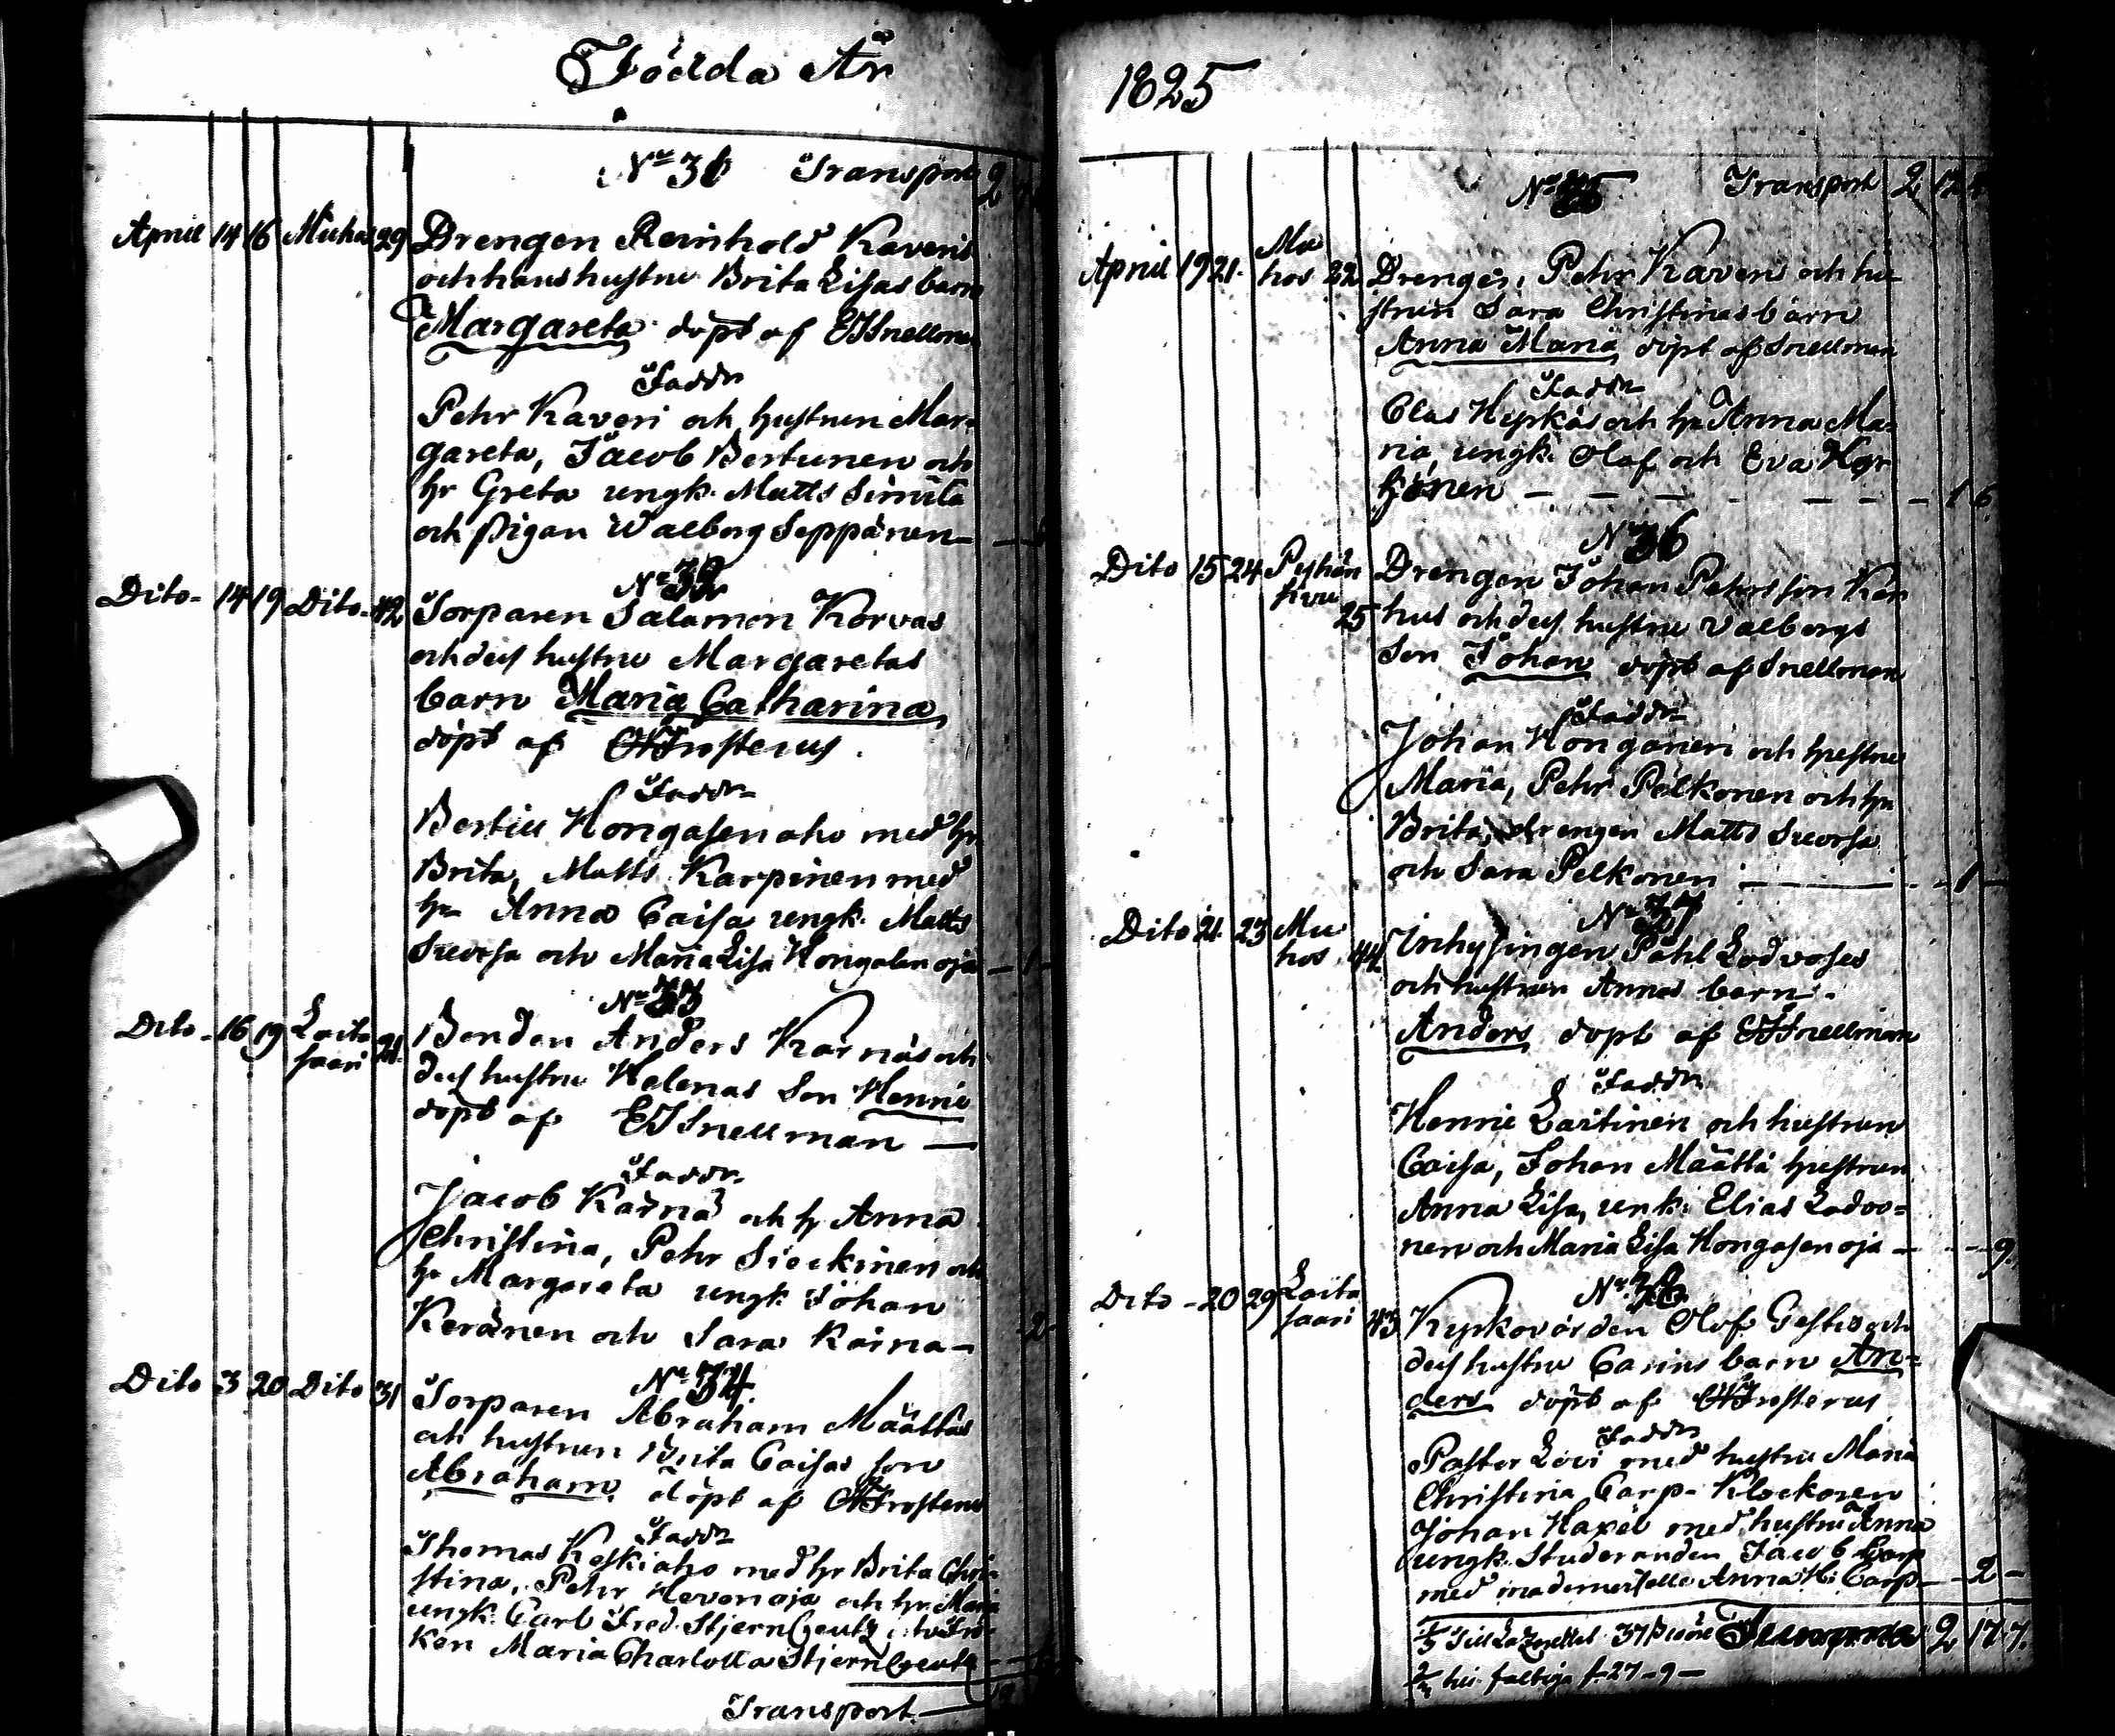 Födda År
No 31 Transport 2
April 14 16 Muhos 29 Drengen Reinhold Kaveris
och hans hustru Brita Lisas barn
Margareta döpt af EJSnellman
Faddr
Pehr Kaveri och hustrun Mar-
gareta, Jacob Bertunen och
hr Greta ungk. Matts Simila
och Pigan Walborg Seppänen —
No 32
Dito - 14 19 Dito - 42 Torparen Salamon Korvas
och dess hustru Margaretas
barn Maria Catharina
döpt af Frosterus.
Faddr
Bertill Hongasenaho med hr
Brita, Matts Karpinen med
hr Anna Caisa ungk. Matts
Suorsa och Maria Lisa Hongalan oja — 1 -
No 33
Dito - 16 19 Laita Bonden Anders Kärnäs och
saari 21. dess hustru Helenas Son Henric
döpt af EJSnellman —
Faddr.
Jacob Kärnä och h. Anna
Christina, Pehr Siekinen och
hr Margareta ungk. Johan
Keränen och Sara Kärnä — 2 -
No 34.
Dito 3 20 Dito 31 Torparen Abraham Määttas
och hustrun Brita Caisas son
Abraham döpt af Frosterus
Faddr
Thomas Keskiaho med hr Brita Chri-
stina, Pehr Hevonoja och hr. Maria
ungk. Carl Fred. StjernCreutz Frö-
ken Maria Charlotta StjernCreutz —
Transport —
1825
No 35 Transport 2 12
April 19 21. Mu
hos 22 Drengen Pehr Kaveri och hu
strun Sara Christinas barn
Anna Maria döpt af Snellman
Faddr
Clas Hyrkäs och hr Anna Ma-
ria, ungk. Olof och Eva Hyr
— — — 1 6
No 36
Dito 15 24 Pyhän Drengen Johan Pehrsson Kär
kyu 25 hus och dess hustru Valborgs
Son Johan döpt af Snellman
Faddr
Johan Honganen och hustru
Maria, Pehr Pälkonen och hr
Brita, drengen Matts Suorsa
och Sara Pelkonen — 1 —
No 37
Dito 21. 23 Mu
hos 44 Inhysingen Påhl Lodvoses
och hustrun Annas barn.
Anders döpt af EJSnellman
Faddr
Henric Laitinen och hustrun
Caisa, Johan Määttä hustrun
Anna Lisa, unk. Elias Lodvo-
nen och Maria Lisa Hongasenoja — 9.
No 38
Dito - 20 29 Laita
saari 43 Kyrkovärden Olof Gestis och
dess hustru Carins barn An-
ders döpt af Frosterus
Faddr
Pastor Levi med hustru Maria
Christina Carp. Klockaren
Johan Haxel med hustru Anna
ungk. Studeranden Jacob Carp
med mademoiselle Anna H: Carp — 2 —
1/3 Till Lazarettet 37 2 17 7.
2/3 till fattiga f. 27 - 9 —